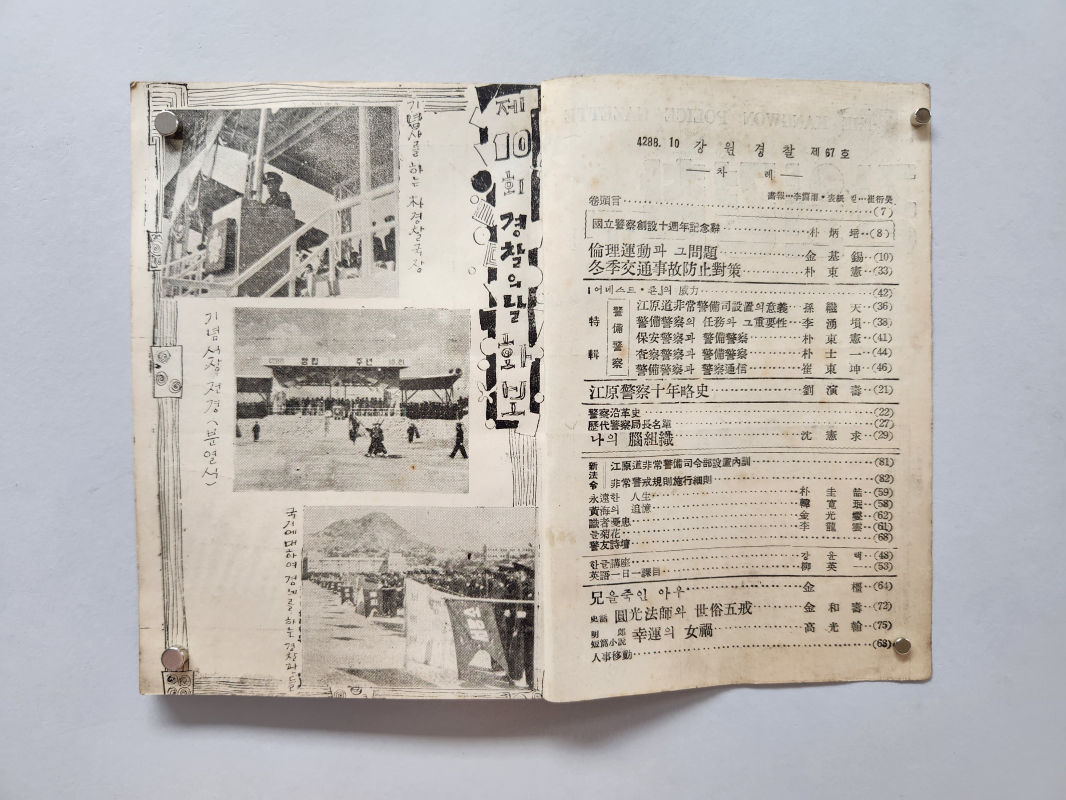 제
10
회
경찰의날
화보
기념사를 하는 朴경찰국장
기념식장 전경 (분열식)
국기에 대하여 경례를 하는 경찰관들
4288. 10 강원경찰 제67호
차 례
卷頭言 (7)
國立警察創設十週年記念辭 朴炳培 (8)
倫理運動과 그問題 金基錫 (10)
冬季交通事故防止對策 朴東憲 (33)
「어네스트·죤」의 威力 (42)
特輯
警備警察
江原道非常警備司設置의意義 孫 天 (36)
警備警察의 任務와 그重要性 李湧 (38)
保安警察과 警備警察 朴東憲 (41)
査察警察과 警備警察 朴士一 (44)
警備警察과 警察通信 崔東坤 (46)
江原警察十年略史 劉演壽 (21)
警察沿革史 (22)
歷代警察局長名單 (27)
나의 腦組織 沈憲求 (29)
新法令
江原道非常警備司令部設置內訓 (81)
非常警戒規則施行細則 (82)
永遠한 人生 朴圭 (59)
黃海의 追憶 韓寬 (58)
識者憂患 金光 (62)
들菊花 李龍雲 (61)
警友詩壇 (68)
한글講座 강윤 (48)
英語一日一課目 柳英一 (53)
兄을죽인 아우 金 (64)
史話 圓光法師와 世俗五戒 金和壽 (72)
明郎短篇小說 幸運의 女禍 高光 (75)
人事移動 (63)